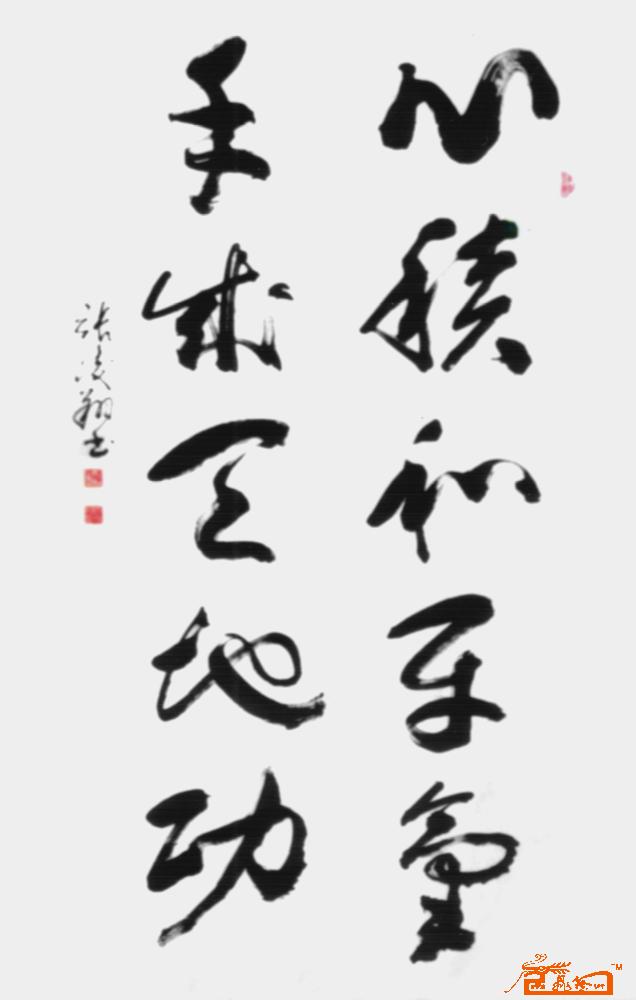 心積和平氣
手成天地功
張凌翔书